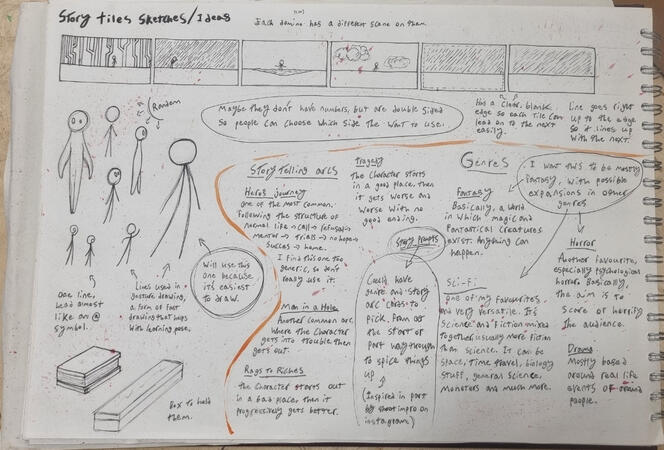 Story tiles sketches/Ideas
Each domino has a different scene on them.
Maybe they don't have numbers, but are double sided
so people can choose which side the want to use.
Has a clear, blank
edge so each tile can
lead on to the next
easily.
Line goes right
up to the edge
so it lines up
with the next.
Random
one line,
head almost
like an @
symbol.
Lines used in
gesture drawing,
a form of fast
drawing that helps
with learning pose.
Will use this
one because
it's easiest
to draw.
Box to hold
them.
Story telling arcs
Heros journey
one of the most common.
Following the structure of
normal life → call → refusal →
mentor → trials → no hope →
success → home.
I find this one too
generic, so don't
really use it.
Man in a Hole
Another common arc
where the character
gets into trouble then
gets out.
Rags to Riches
the character starts out
in a bad place, then it
progressively gets better.
Tragedy
the character starts
in a good place, then
it gets worse and
worse with no
good ending.
Story prompts
Could have
genre and story
arc cards to
pick, from at
the start or
part way through
to spice things
up
(Inspired in part
by shoot impro on
instagram)
Genres
I want this to be mostly
fantasy, with possible
expansions in other
genres
Fantasy
Basically, a world
in which magic and
fantastical creatures
exist. Anything can
happen.
Sci-Fi
one of my favourites,
and very versatile. It's
science and fiction mixed
together usually more fiction
than science. It can be
space, time travel, biology
stuff, general science,
monsters and much more.
Horror
Another favourite,
especially psychological
horror. Basically,
the aim is to
scare or horrify
the audience.
Drama
Mostly based
around real life
events or around
people.